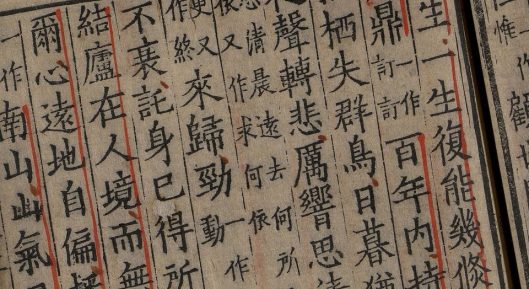 生一生復能幾倏
鼎一作訂訂百年内持
栖失群鳥日暮猶
聲轉悲厲響思清
清晨遠去何所
依又作求何依
更又作終來歸勁一作動
不衰託身已得所
結廬在人境而無
爾心遠地自偏
一作南山山氣